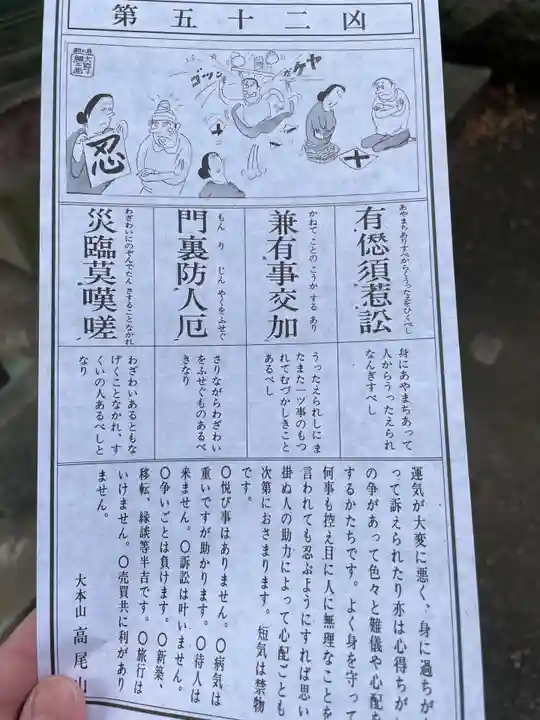 第五十二凶
ゴツン
ケヤ
忍
有僁須惹訟
あやまちありすべからくうったえをひくべし
兼有事交加
かねてことのこうかするあり
門裏防人厄
もんりじんやくをふせぐ
災臨莫嘆嗟
わざわいにのぞんでたんさすることなかれ
身にあやまちあって
人からうったえられ
なんぎすべし
うったえられしにま
たまた一ツ事のもつ
れてむづかしきこと
あるべし
さりながらわざわい
をふせぐものあるべ
きなり
わざわいあるともな
げくことなかれ、す
くいの人あるべしと
なり
運気が大変に悪く、身に過ちが
って訴えられたり亦は心得ちが
の争があって色々と難儀や心配
するかたちです。よく身を守って
何事も控え目に人に無理なことを
言われても忍ぶようにすれば思い
掛ぬ人の助力によって心配ごとも
次第におさまります。短気は禁物
です。
〇悦び事はありません。〇病気は
重いですが助かります。〇待人は
来ません。〇訴訟は叶いません。
〇争いごとは負けます。〇新築、
移転、縁談等半吉です。〇旅行は
いけません。〇売買共に利があり
ません。
大本山 高尾山